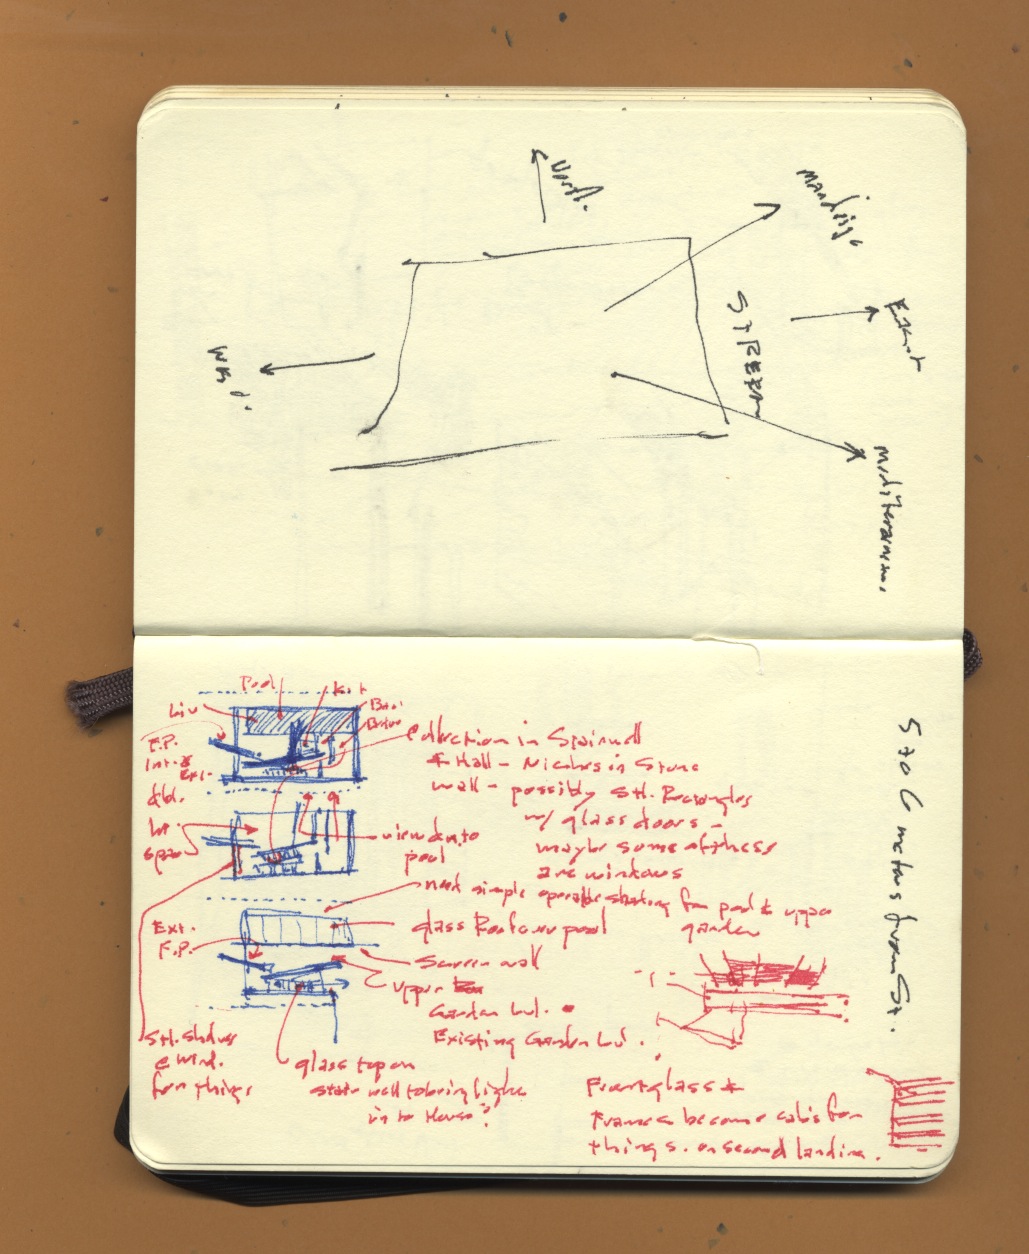 North
East
STREET
West
Mediterranean
Pool
Kit
Liv
F.P.
Int. &
Ext.
Collection in Stairwell
& Hall - Niches in Stone
wall - possibly Stl. Rectangles
w/ glass doors -
maybe some of these
are windows
view down to
pool
need simple operable shading for pool & upper
garden
glass Roof over pool
Ext.
F.P.
Screen wall
upper
Garden lvl.
Existing Garden lvl.
Stl. Shelves
@ wind.
for things
glass top on
stair well to bring light
in to House?
Front glass &
Frames become cabs for
things. on second landing.
5 to 6 meters from St.